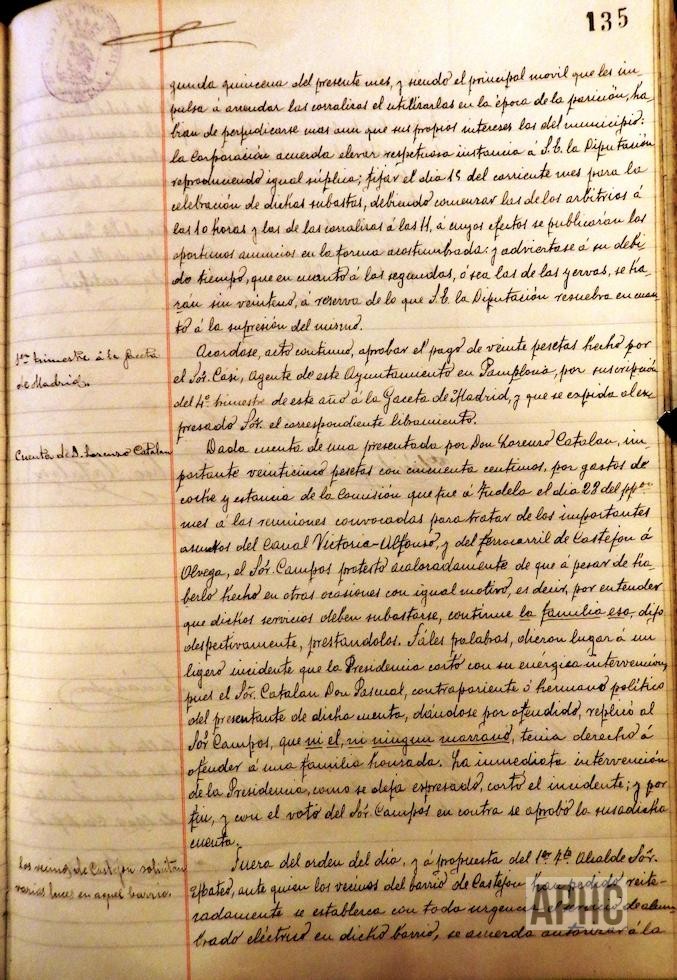 135
gunda quincena del presente mes, y siendo el principal movil que les im-
pulsa á arrendar las corralizas el utilizarlas en la época de la parición, ha-
brian de perjudicarse mas aun que sus propios intereses los del municipio:
la Corporación acuerda elevar respetuosa instancia á S.E. la Diputación
reproduciendo igual súplica; fijar el dia 15 del corriente mes para la
celebración de dichas subastas, debiendo comenzar las de los arbitrios á
las 10 horas y las de las corralizas á las 11, á cuyos efectos se publicarán los
oportunos anuncios en la forma acostumbrada: y adviertase á su debi-
do tiempo, que en cuanto á las segundas, ó sea las de las yervas, se ha-
rán sin veinteno, á reserva de lo que S.E. la Diputación resuelva en cuan-
to á la supresión del mismo.
trimestre á la Gaceta
de Madrid.
Acordose, acto continuo, aprobar el pago de veinte pesetas hecho por
el Sór. Casi, Agente de este Ayuntamiento en Pamplona, por suscripción
del 4º trimestre de este año á la Gaceta de Madrid, y que se expida al ex-
presado Sór. el correspondiente libramiento.
Cuenta de D. Lorenzo Catalan
Dada cuenta de una presentada por Don Lorenzo Catalan, im-
portante veinticinco pesetas con cincuenta centimos, por gastos de
coche y estancia de la Comisión que fue á Tudela el dia 28 del ppdo
mes á las reuniones convocadas para tratar de los importantes
asuntos del Canal Victoria-Alfonso, y del ferrocarril de Castejon á
Olvega, el Sór. Campos protestó acaloradamente de que á pesar de ha-
berlo hecho en otras ocasiones con igual motivo, es decir, por entender
que dichos servicios deben subastarse, continue la familia esa, dijo
despectivamente, prestandolos. Tales palabras, dieron lugar á un
ligero incidente que la Presidencia cortó con su enérgica intervención,
pues el Sór. Catalan Don Pascual, contrapariente ó hermano político
del presentante de dicha cuenta, dándose por ofendido, replicó al
Sór Campos, que ni el, ni ningun marrano, tenia derecho á
ofender á una familia honrada. La inmediata intervención
de la Presidencia, como se deja expresado, cortó el incidente; y por
fin, y con el voto del Sór. Campos en contra se aprobó la susodicha
cuenta.
Los vecinos de Castejon solicitan
varias luces en aquel barrio.
Fuera del orden del dia, y á propuesta del 1er Tte. Alcalde Sór.
ante quien los vecinos del barrio de Castejon han pedido reite-
radamente se establezca con toda urgencia el servicio de alum-
brado eléctrico en dicho barrio, se acuerda autorizar á la
APHC